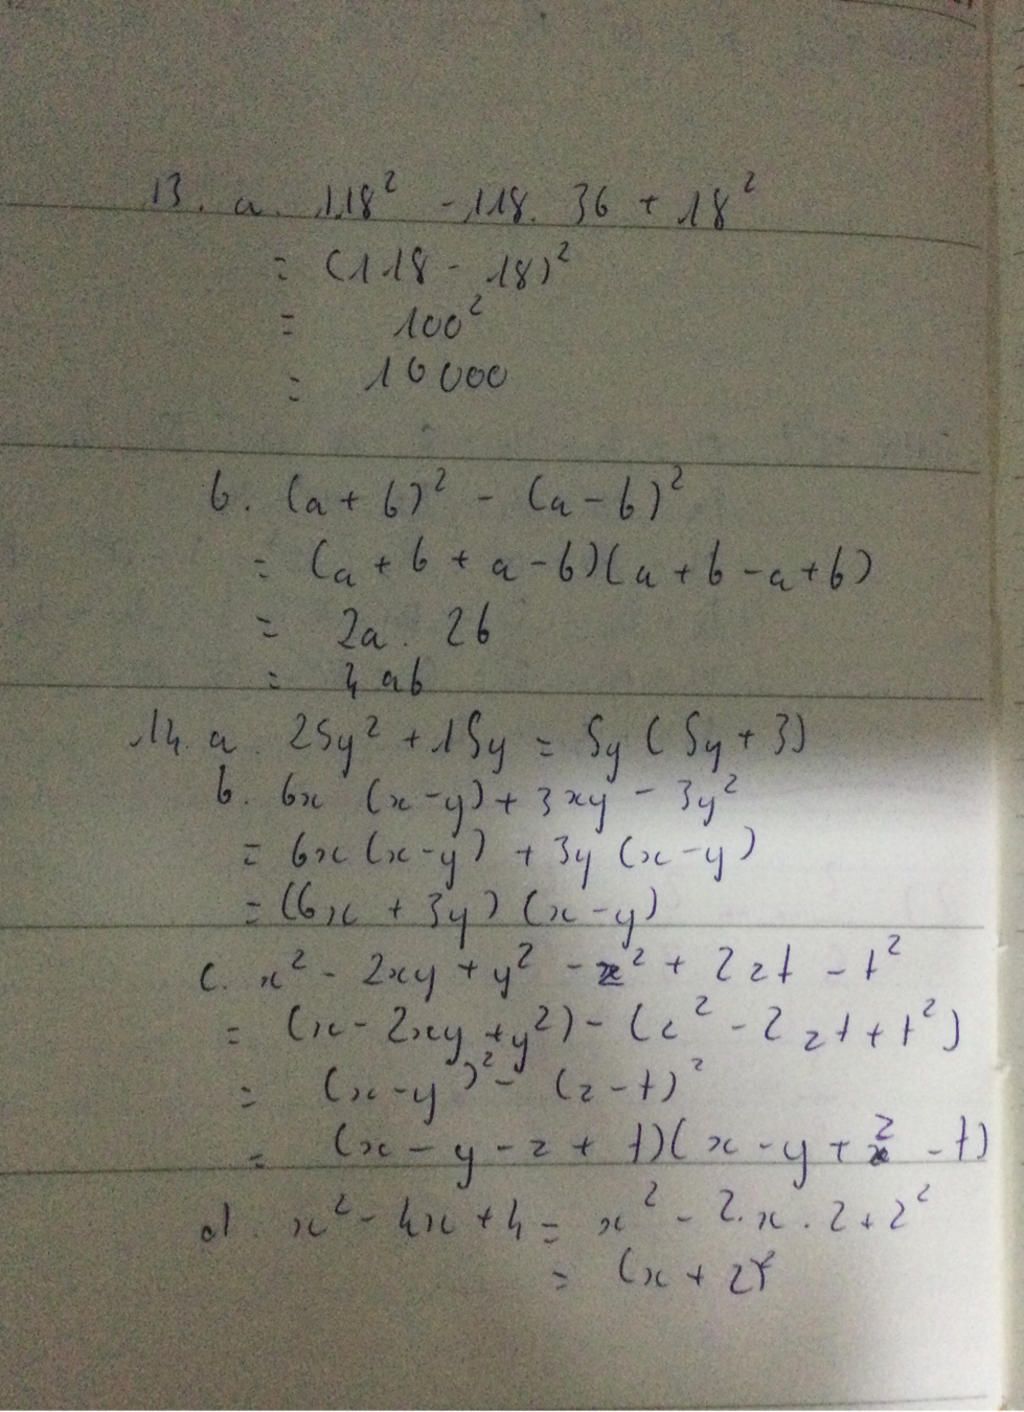 13. a. 118² - 118. 36 + 18²
= (118 - 18)²
= 100²
= 10 000
b. (a + b)² - (a - b)²
= (a + b + a - b)(a + b - a + b)
= 2a . 2b
= 4 ab
14. a. 25y² + 15y = 5y ( 5y + 3)
b. 6x (x - y) + 3xy - 3y²
= 6x (x - y) + 3y (x - y)
= (6x + 3y) (x - y)
c. x² - 2xy + y² - z² + 2zt - t²
= (x - 2xy + y²) - (z² - 2zt + t²)
= (x - y)² - (z - t)²
= (x - y - z + t)(x - y + z - t)
d. x² - 4x + 4 = x² - 2.x . 2 + 2²
= (x + 2)²